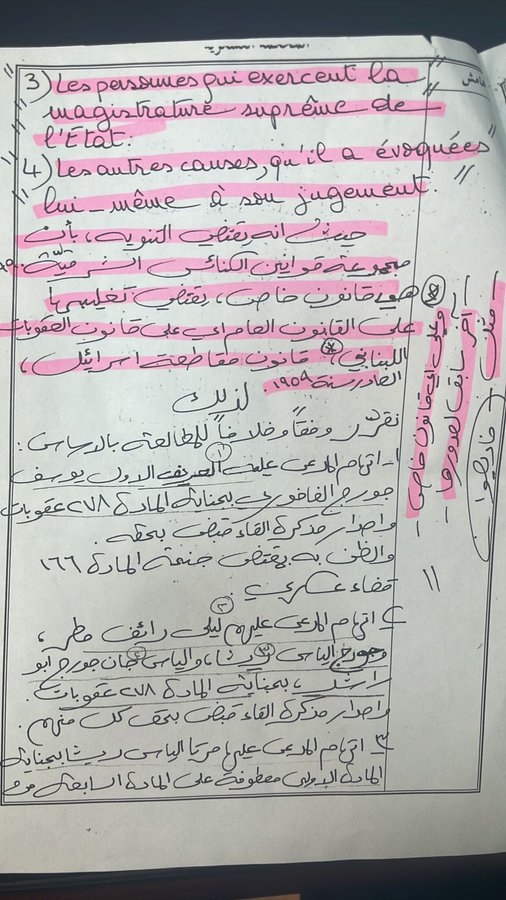 هامش
3) Les personnes qui exercent la
magistrature suprême de
l'État.
4) Les autres causes, qu'il a évoquées
lui-même à son jugement.
حيث انه يقتضي التنويه، بأن
مجموعة قوانين الكنائس الشرقية
هو قانون خاص، يقتضي تغليبها
على القانون العام اي على قانون العقوبات
اللبناني، * قانون مقاطعة اسرائيل،
الصادر سنة ١٩٥٥
لذلك
نقرر وفقاً وخلافاً للمطالعة بالاساس:
١- اتهام المدعى عليه ① العريف الاول يوسف
جورج الفاخوري بجناية المادة ٢٧٨ عقوبات
واصدار مذكرة القاء قبض بحقه.
والظن به بمقتضى جنحة المادة ١٦٦
قضاء عسكري.
٢- اتهام المدعى عليهم ليلى رائف مطر،
وجورج الياس، والياس جان جورج ابو
راشد، بجناية المادة ٢٧٨ عقوبات.
واصدار مذكرة القاء قبض بحق كل منهم.
٣- اتهام المدعى عليها مرتا الياس بجناية
المادة الاولى معطوفة على المادة السابعة من
* وعلى اي قانون خاص
آخر سابق لصدورها